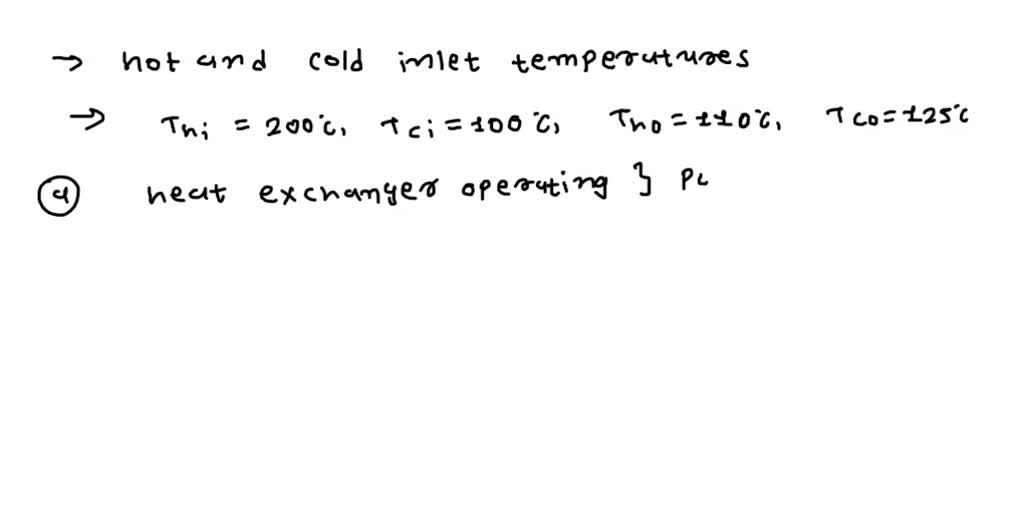 → hot and cold inlet temperatures
→ Thi = 200°C, Tci = 100°C, Tho = 110°C, Tco = 125°C
(a) heat exchanger operating } Pa